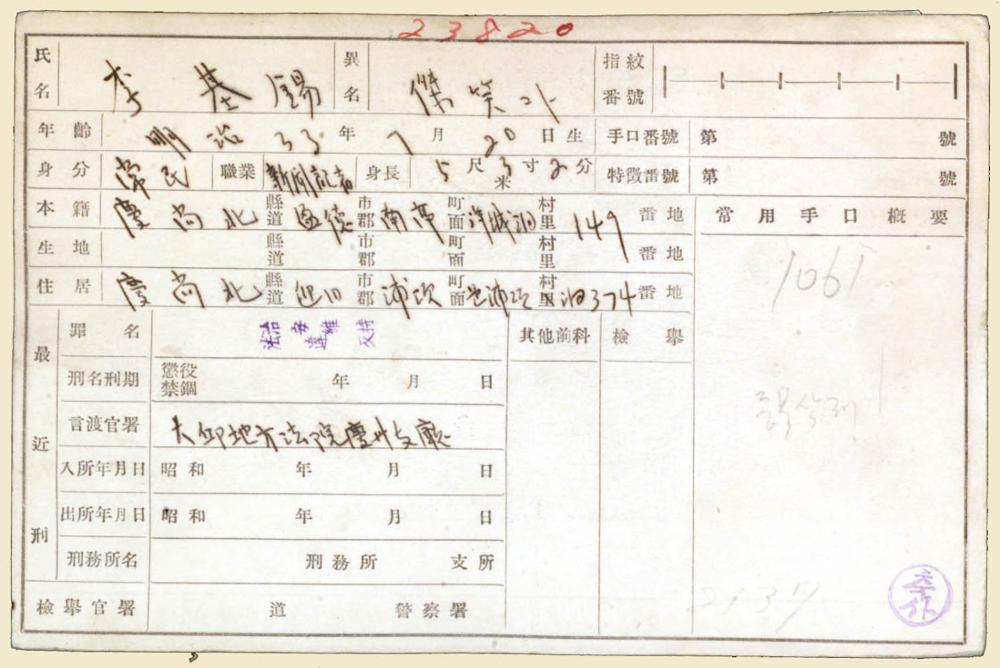 23820
氏名 李基錫 異名 傑笑 指紋番號
年齡 明治33年7月20日生 手口番號 第 號
身分 常民 職業 新聞記者 身長 5尺米3寸2分 特徵番號 第 號
本籍 慶尚北 縣道 盈德 市郡 南亭 町面 洞 村里 149 番地 常用手口概要
生地 縣道 市郡 町面 村里 番地 1061
住居 慶尚北 縣道 迎日 市郡 浦項 町面 浦項 村里 洞374 番地
最近刑
罪名 治安維持法違反 其他前科 檢擧
刑名刑期 懲役禁錮 年 月 日
言渡官署 大邱地方法院慶州支廳
入所年月日 昭和 年 月 日
出所年月日 昭和 年 月 日
刑務所名 刑務所 支所
檢擧官署 道 警察署